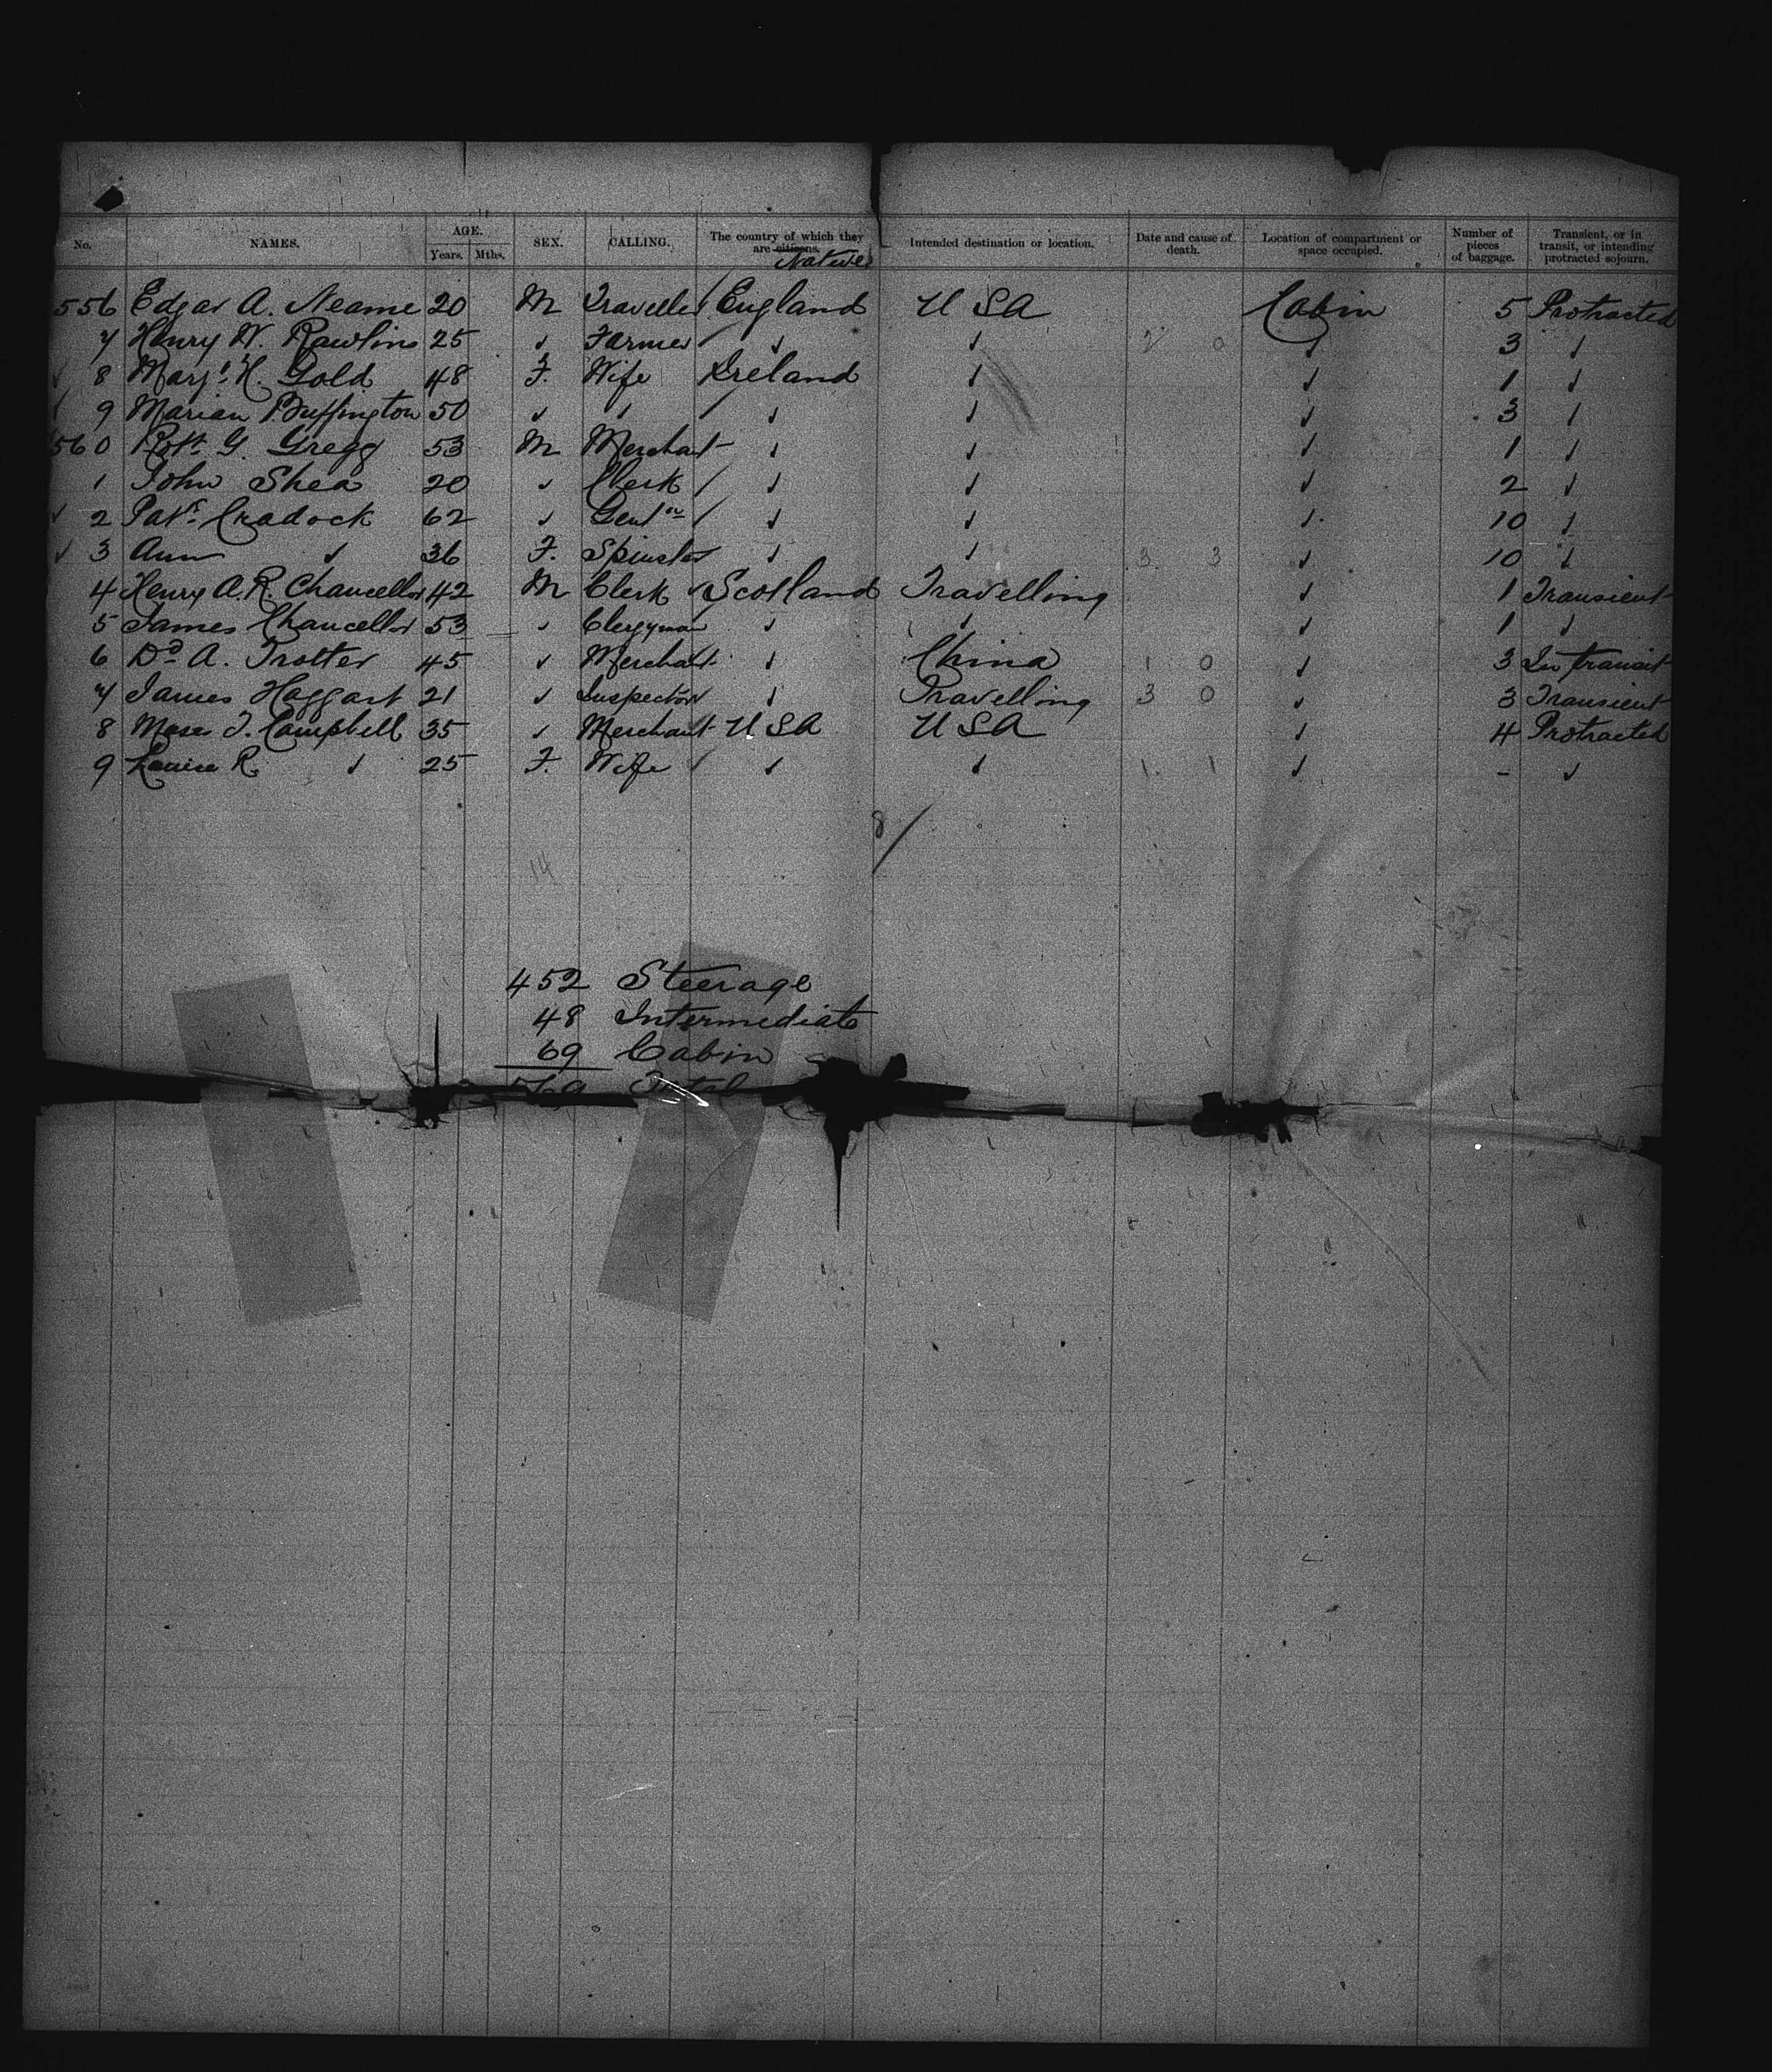 No. NAMES. AGE. Years. Mths. SEX. CALLING. The country of which they are citizens. Natives Intended destination or location. Date and cause of death. Location of compartment or space occupied. Number of pieces of baggage. Transient, or in transit, or intending protracted sojourn.
556 Edgar A. Neame 20 M Traveller England USA Cabin 5 Protracted
7 Henry W. Rawlins 25 ✓ Farmer ✓ ✓ 2 0 ✓ 3 ✓
✓ 8 Margt. H. Gold 48 F. Wife Ireland ✓ ✓ 1 ✓
✓ 9 Marian Buffington 50 ✓ ✓ ✓ ✓ ✓ 3 ✓
560 Robt. G. Gregg 53 M Merchant ✓ ✓ ✓ 1 ✓
1 John Shea 20 ✓ Clerk ✓ ✓ ✓ 2 ✓
✓ 2 Patk. Cradock 62 ✓ Gentn ✓ ✓ ✓ 10 ✓
✓ 3 Ann ✓ 36 F. Spinster ✓ ✓ 3 3 ✓ 10 ✓
4 Henry A. R. Chancellor 42 M Clerk Scotland Travelling ✓ 1 Transient
5 James Chancellor 53 ✓ Clergyman ✓ ✓ ✓ 1 ✓
6 Dd. A. Trotter 45 ✓ Merchant ✓ China 1 0 ✓ 3 In transit
7 James Haggart 21 ✓ Inspector ✓ Travelling 3 0 ✓ 3 Transient
8 J. Campbell 35 ✓ Merchant USA USA ✓ 4 Protracted
9 Louise R. ✓ 25 F. Wife ✓ ✓ 1 1 ✓ - ✓
8/
14
452 Steerage
48 Intermediate
69 Cabin
569 Total